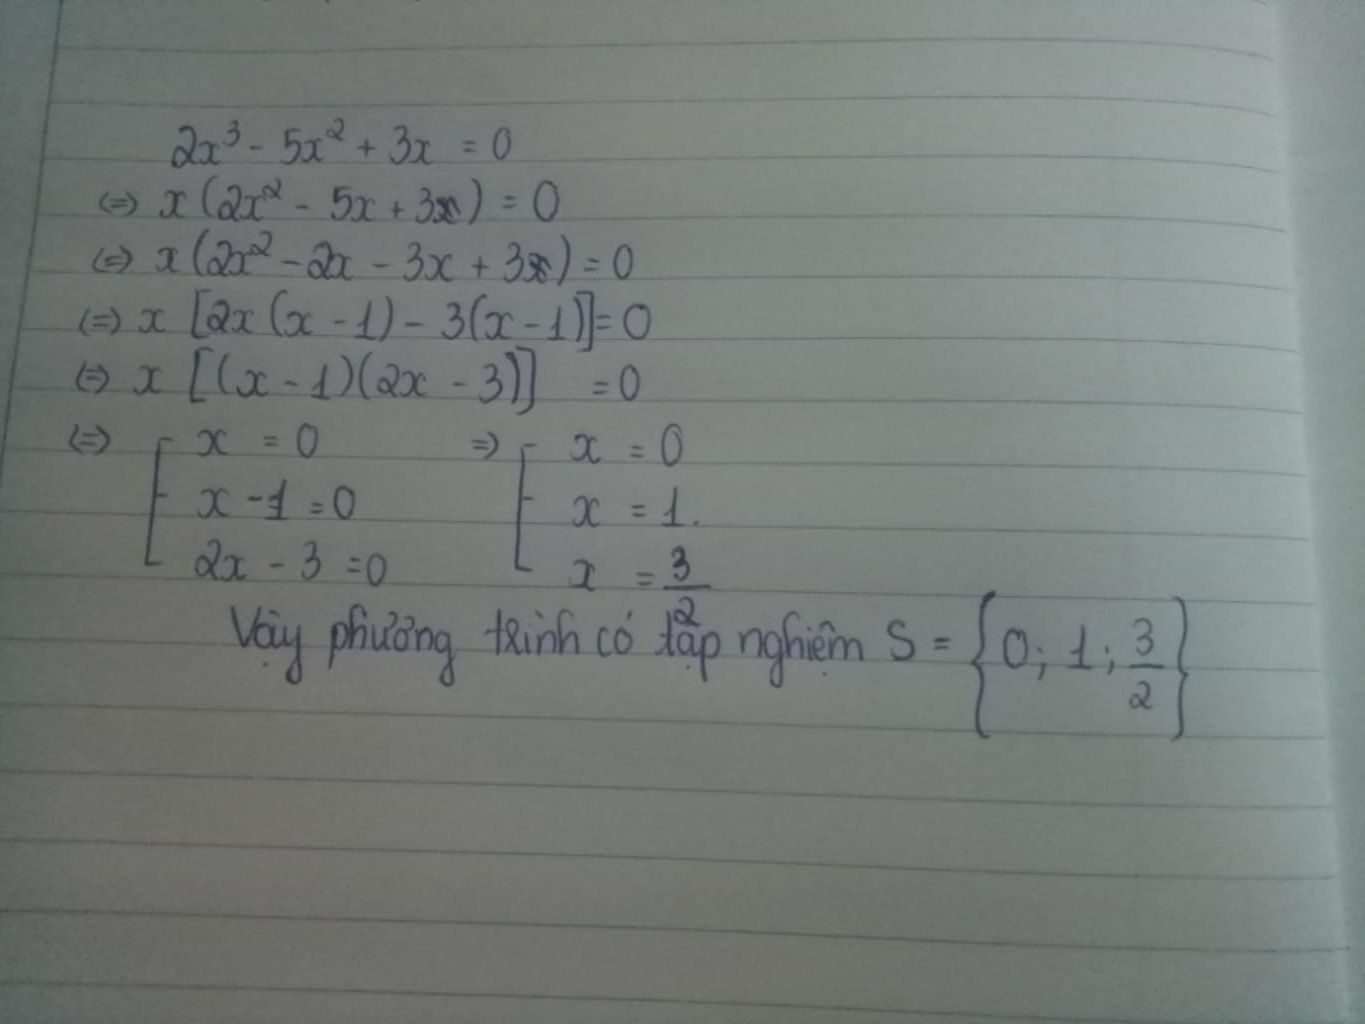 2x³ - 5x² + 3x = 0
(=) x (2x² - 5x + 3) = 0
(=) x (2x² - 2x - 3x + 3) = 0
(=) x [2x (x - 1) - 3(x - 1)] = 0
(=) x [(x - 1)(2x - 3)] = 0
(=) [ x = 0 => [ x = 0
x - 1 = 0 x = 1.
2x - 3 = 0 x = 3/2
Vậy phương trình có tập nghiệm S = {0; 1; 3/2}